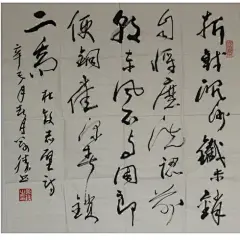 折戟沉沙鐵未銷
自將磨洗認前
朝東風不與周郎
便銅雀深春鎖
二喬 杜牧赤壁詩